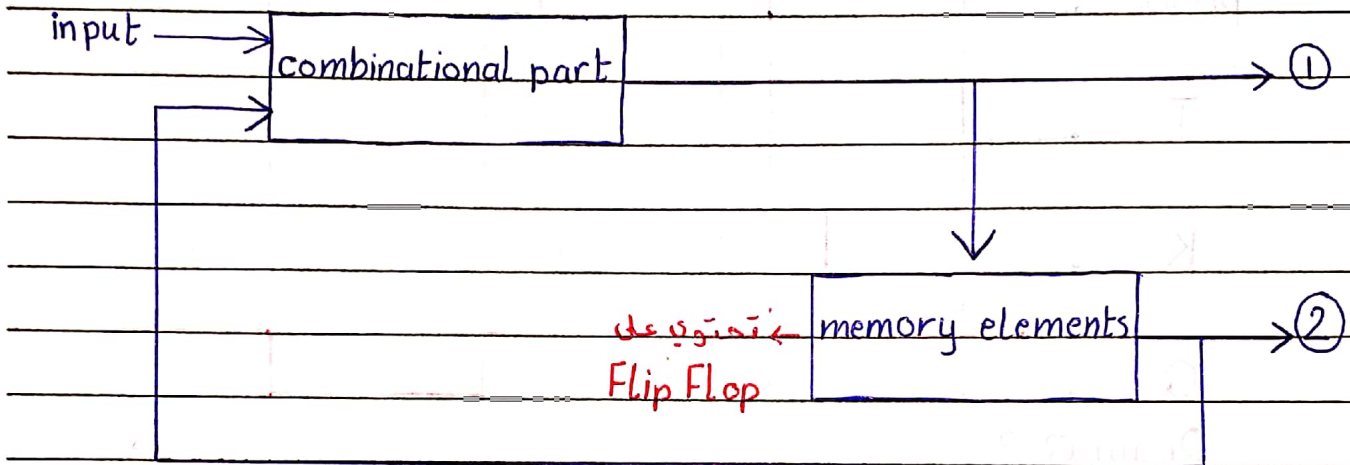 input
combinational part
①
← تحتوي على
memory elements
②
Flip Flop